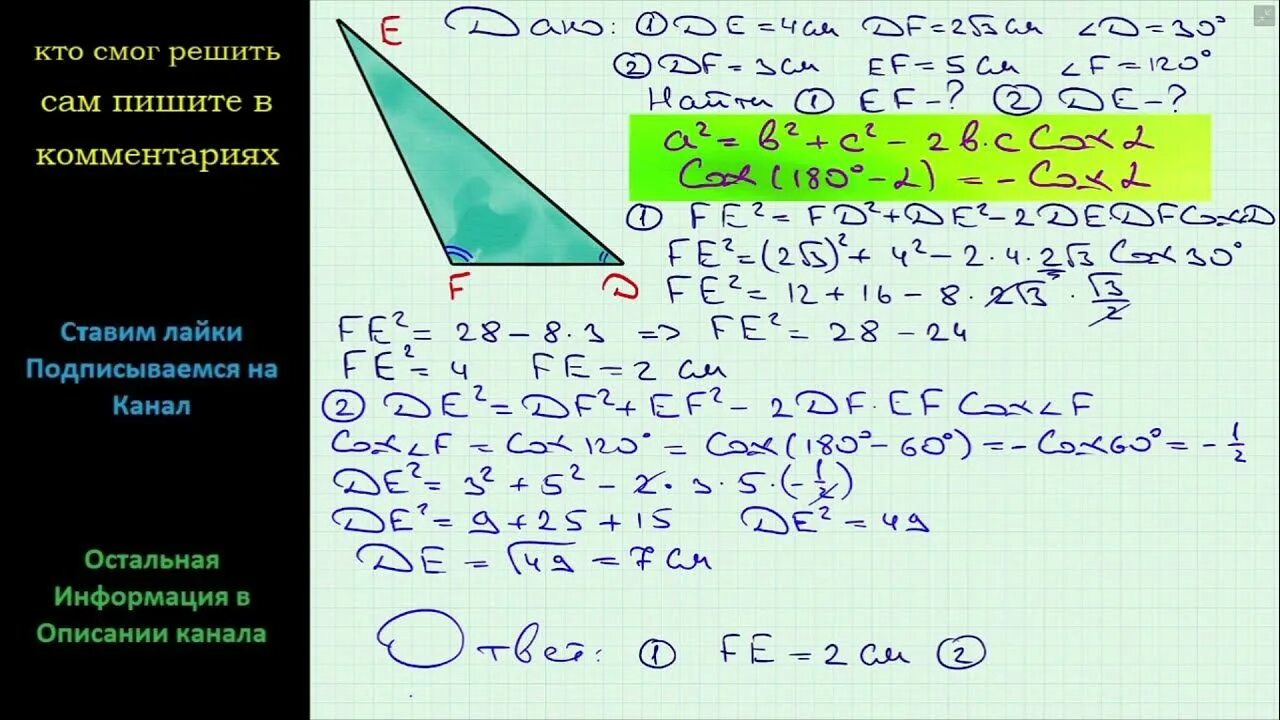 кто смог решить
сам пишите в
комментариях
Ставим лайки
Подписываемся на
Канал
Остальная
Информация в
Описании канала
E
F
D
Дано: ① DE = 4 см DF = 2√3 см ∠D = 30°
② DF = 3 см EF = 5 см ∠F = 120°
Найти ① EF - ? ② DE - ?
a² = b² + c² - 2b·c Cos α
Cos (180° - α) = - Cos α
① FE² = FD² + DE² - 2DE DF Cos D
FE² = (2√3)² + 4² - 2·4·2√3 Cos 30°
FE² = 12 + 16 - 8·2√3·√3/2
FE² = 28 - 8·3 => FE² = 28 - 24
FE² = 4 FE = 2 см
② DE² = DF² + EF² - 2DF·EF Cos∠F
Cos∠F = Cos 120° = Cos (180° - 60°) = - Cos 60° = - 1/2
DE² = 3² + 5² - 2·3·5·(-1/2)
DE² = 9 + 25 + 15 DE² = 49
DE = √49 = 7 см
Ответ: ① FE = 2 см ②